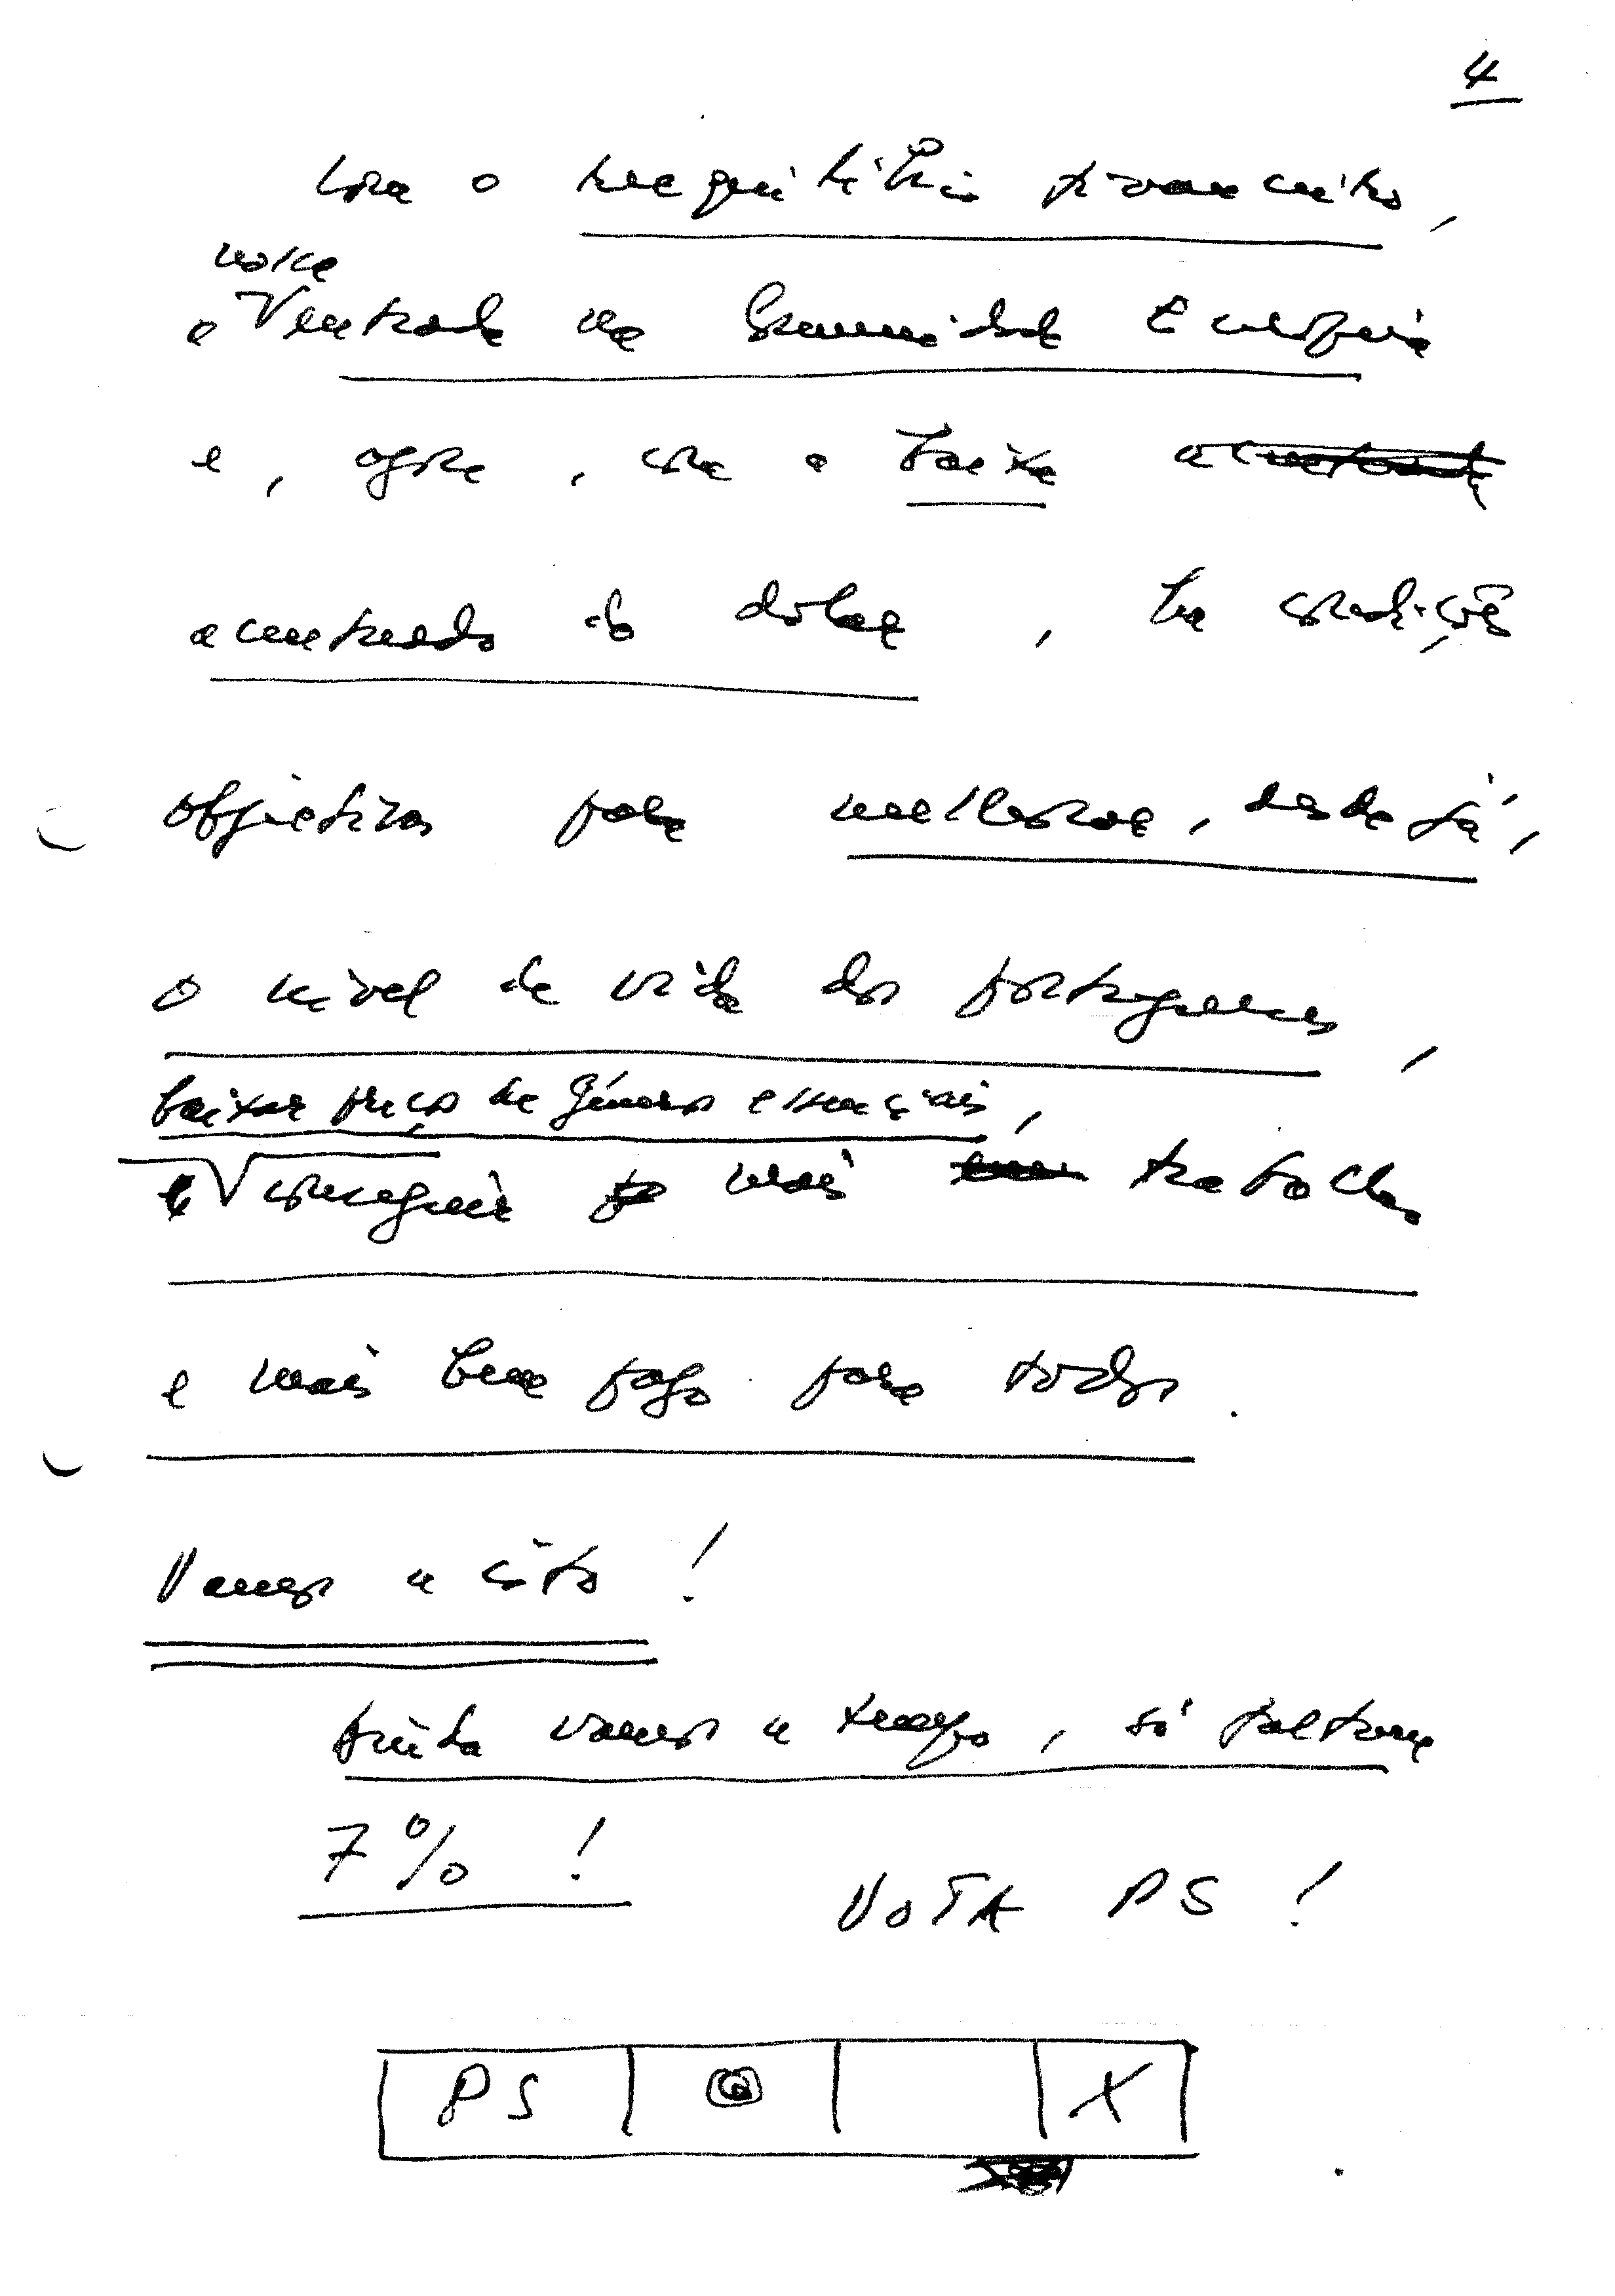 4
com o reequilíbrio financeiro,
nossa
a entrada na Comunidade Europeia
e, agora, com a baixa
acentuada do dólar, há condições
objectivas para melhorar, desde já,
o nível de vida dos portugueses,
baixar preços de géneros essenciais,
e conseguir mais trabalho
e mais bem pago para todos.
Vamos a isto!
Ainda vamos a tempo, só faltam
7%!
VOTA PS!
PS X